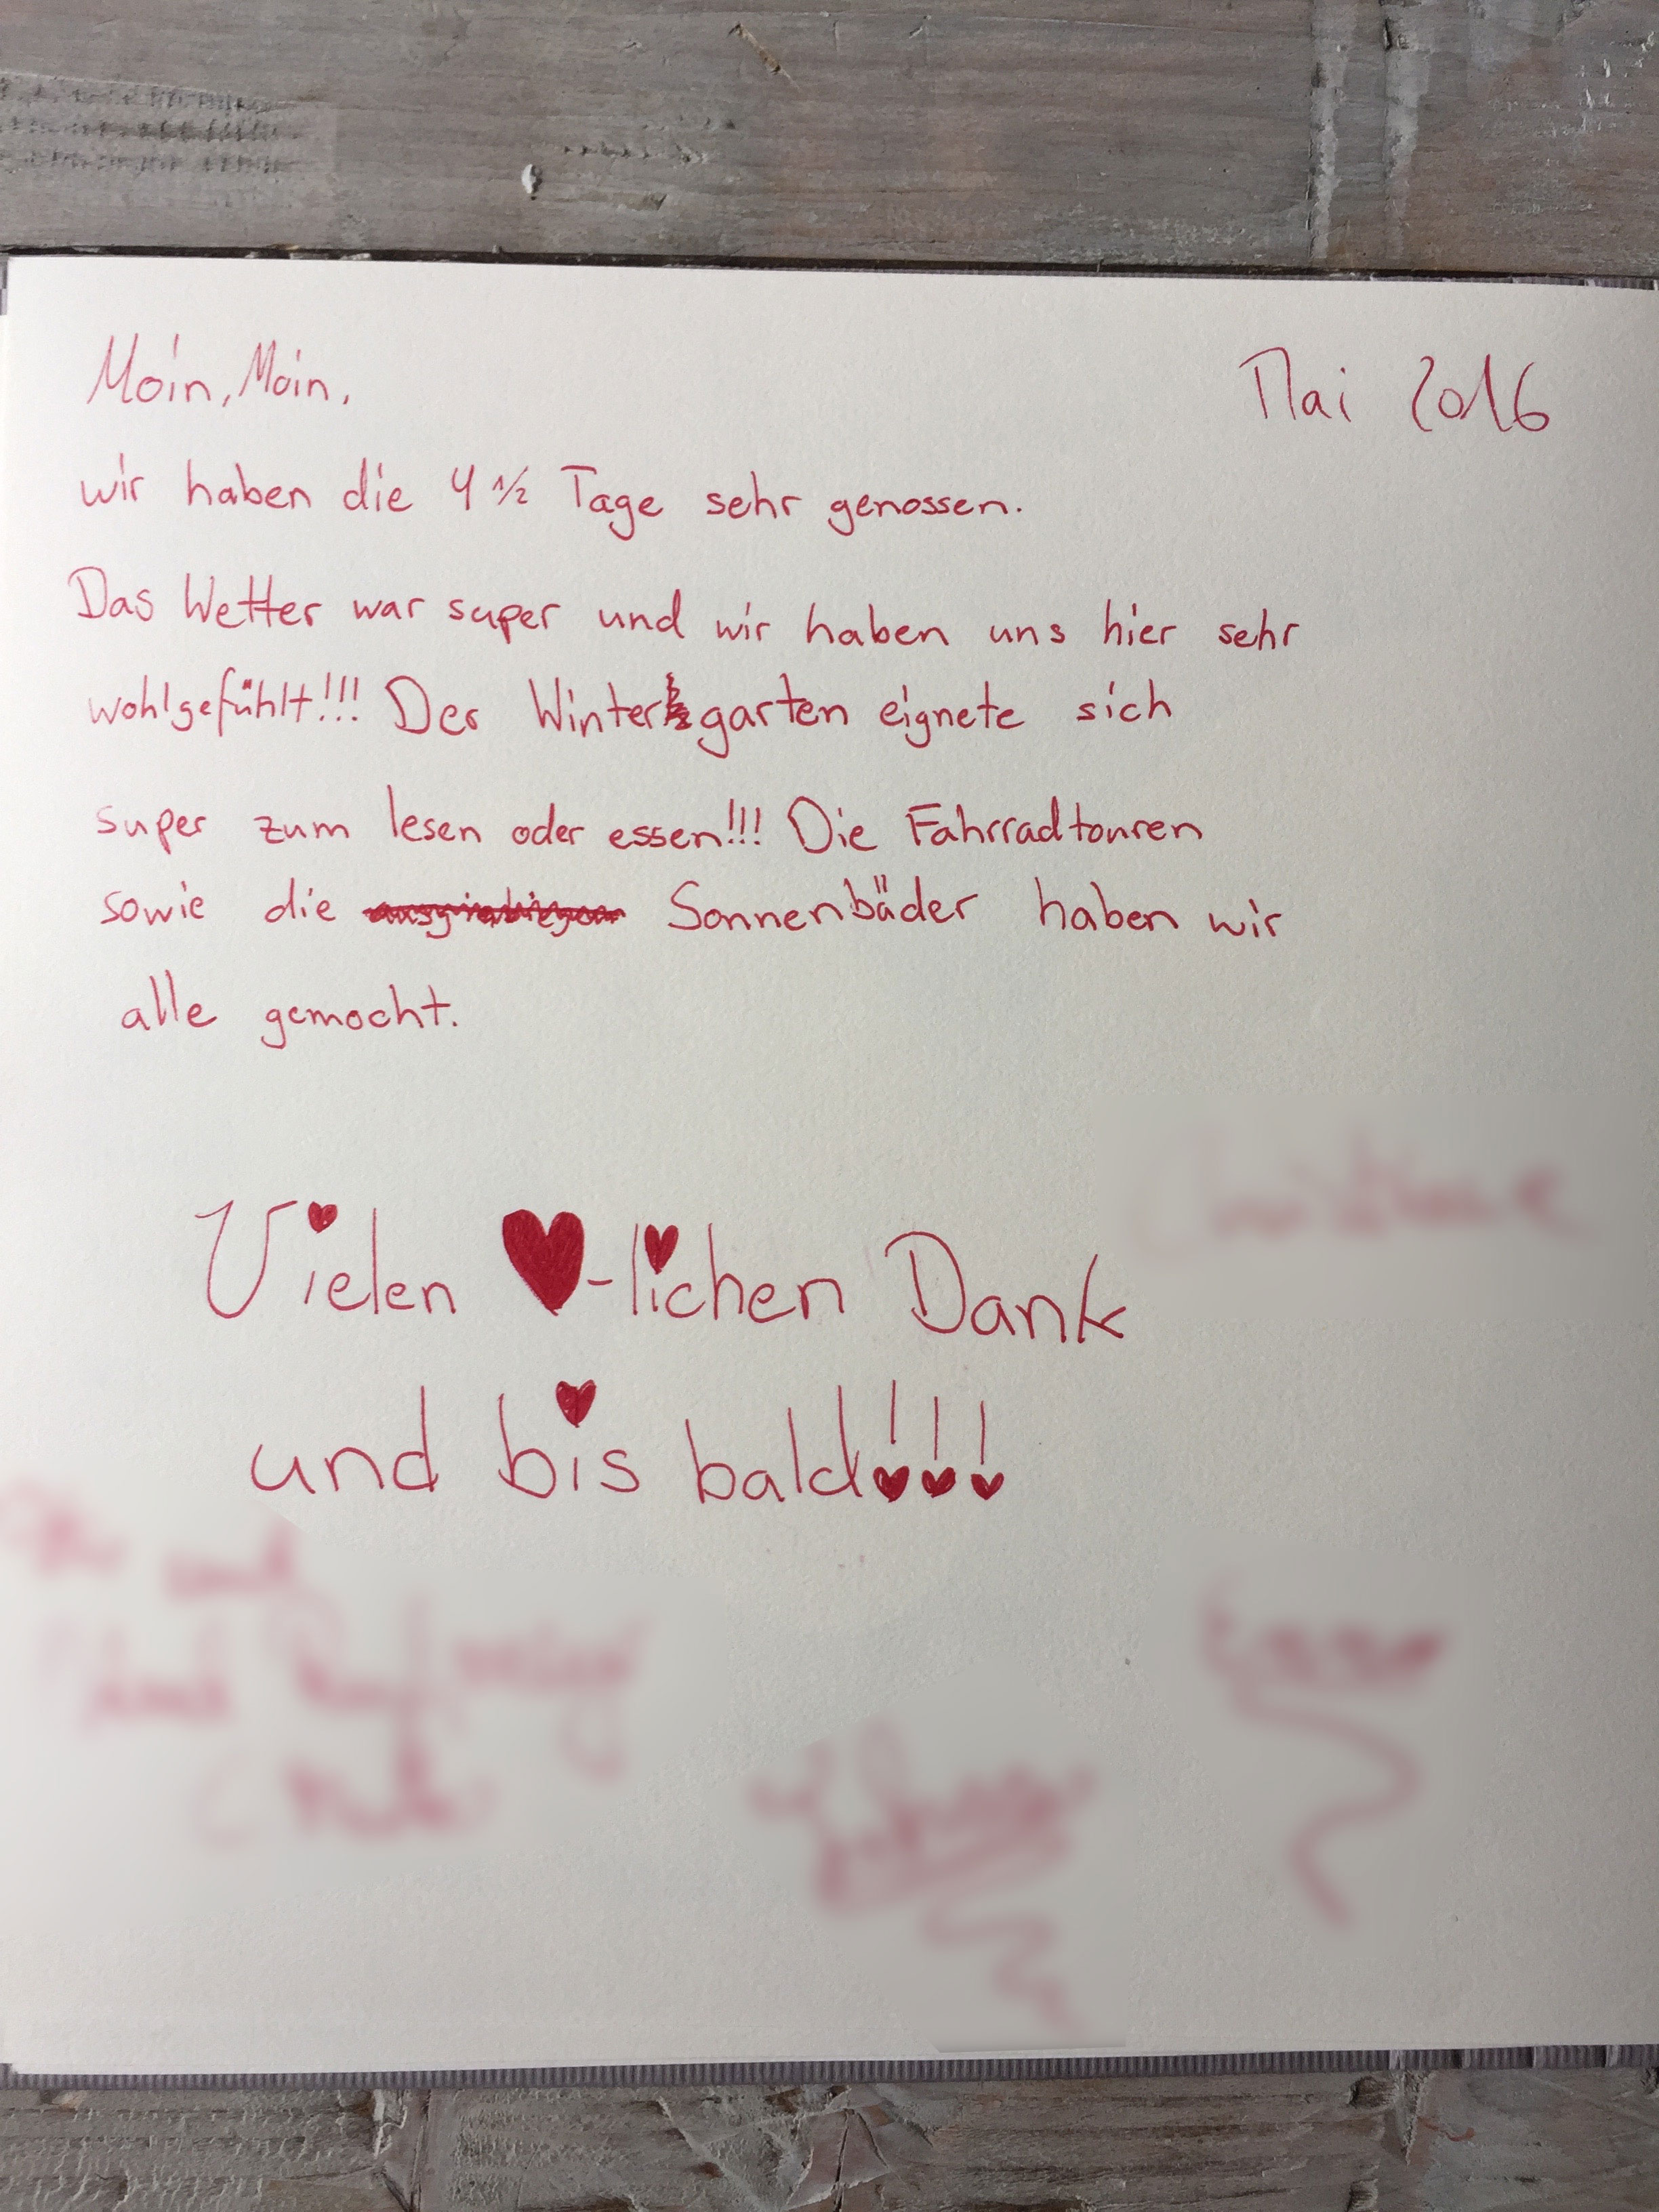 Moin, Moin, Mai 2016
wir haben die 4 1/2 Tage sehr genossen.
Das Wetter war super und wir haben uns hier sehr
wohlgefühlt!!! Der Wintergarten eignete sich
super zum lesen oder essen!!! Die Fahrradtouren
sowie die Sonnenbäder haben wir
alle gemocht.
Vielen ♥-lichen Dank
und bis bald!!!